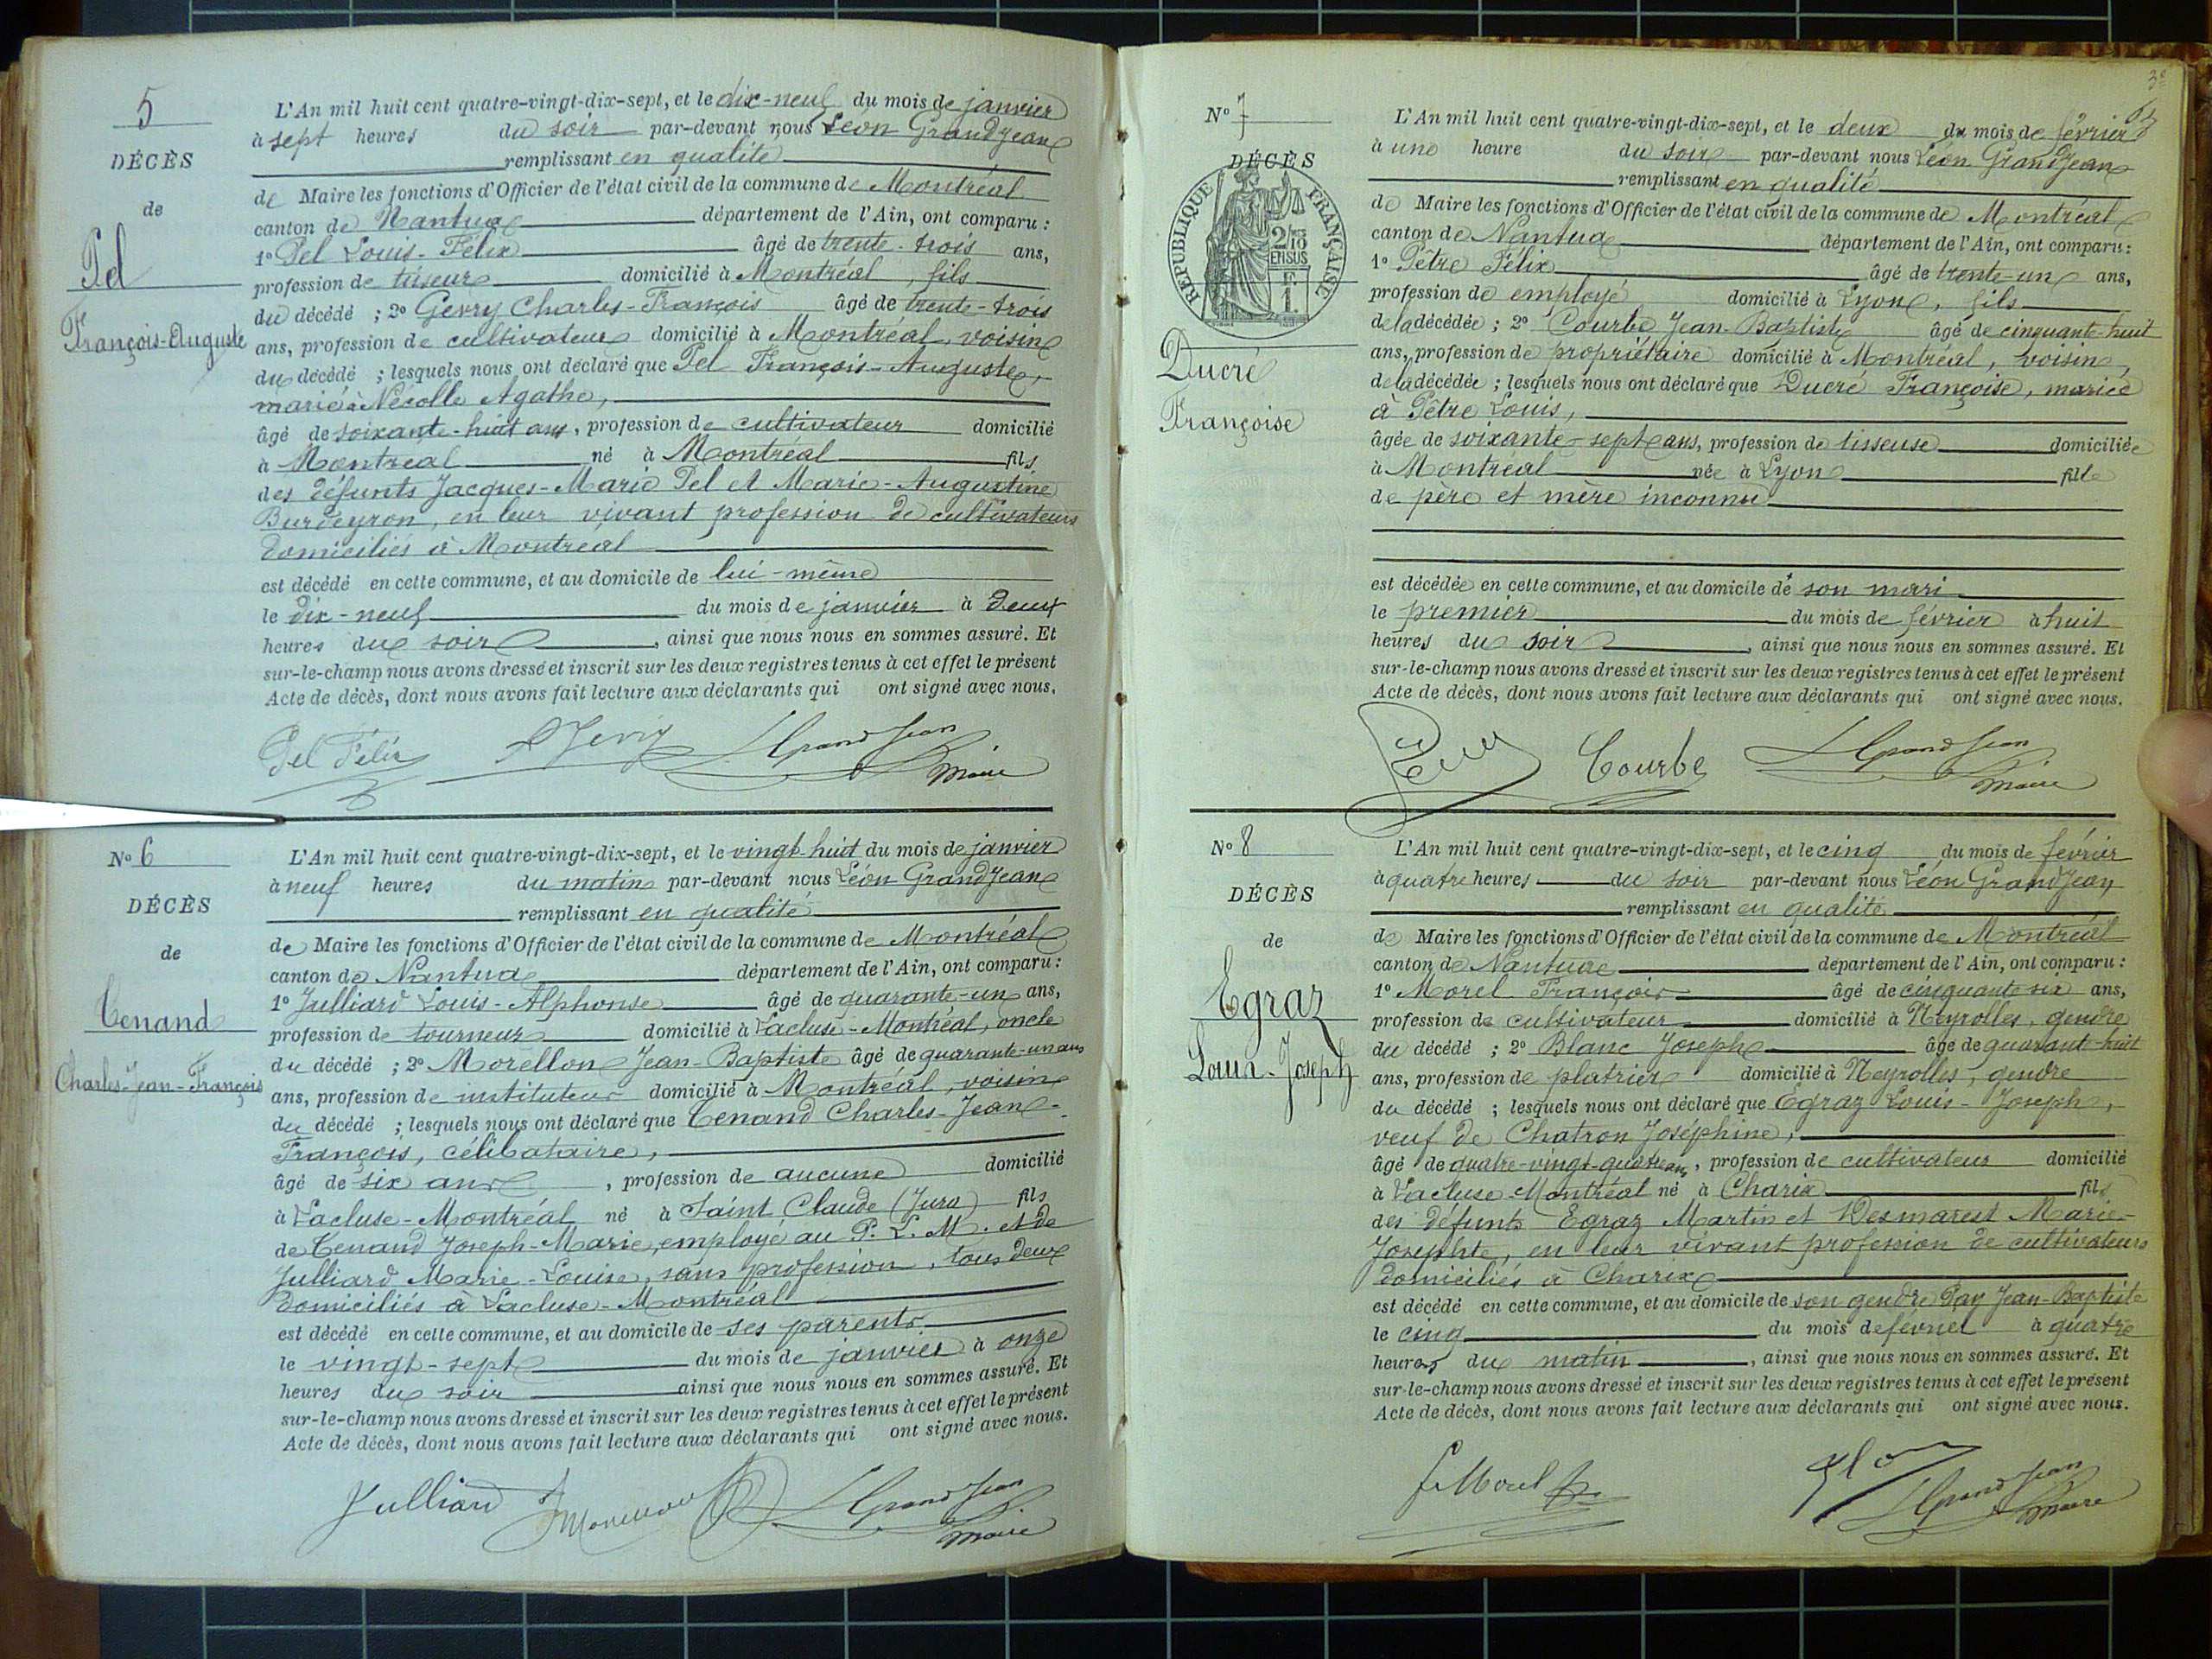 5
DÉCÈS
de
Pel
François-Auguste
L'An mil huit cent quatre-vingt-dix-sept, et le dix-neuf du mois de janvier
à sept heures du soir par-devant nous Léon Grandjean
remplissant en qualité
de Maire les fonctions d'Officier de l'état civil de la commune de Montréal
canton de Nantua département de l'Ain, ont comparu :
1º Pel Louis-Félix âgé de trente-trois ans,
profession de tisseur domicilié à Montréal, fils
du décédé ; 2º Gevry Charles-François âgé de trente-trois
ans, profession de cultivateur domicilié à Montréal, voisin
du décédé ; lesquels nous ont déclaré que Pel François-Auguste,
marié à Nécolle Agathe,
âgé de soixante-huit ans, profession de cultivateur domicilié
à Montréal né à Montréal fils
des défunts Jacques-Marie Pel et Marie-Augustine
Burdeyron, en leur vivant profession de cultivateurs
domiciliés à Montréal
est décédé en cette commune, et au domicile de lui-même
le dix-neuf du mois de janvier à deux
heures du soir, ainsi que nous nous en sommes assuré. Et
sur-le-champ nous avons dressé et inscrit sur les deux registres tenus à cet effet le présent
Acte de décès, dont nous avons fait lecture aux déclarants qui ont signé avec nous.
Pel Félix Gevry L Grandjean
Maire
Nº 6
DÉCÈS
de
Cenand
Charles-Jean-François
L'An mil huit cent quatre-vingt-dix-sept, et le vingt-huit du mois de janvier
à neuf heures du matin par-devant nous Léon Grandjean
remplissant en qualité
de Maire les fonctions d'Officier de l'état civil de la commune de Montréal
canton de Nantua département de l'Ain, ont comparu :
1º Julliard Louis-Alphonse âgé de quarante-un ans,
profession de tourneur domicilié à Lacluse-Montréal, oncle
du décédé ; 2º Morellon Jean-Baptiste âgé de quarante-un ans
ans, profession de instituteur domicilié à Montréal, voisin
du décédé ; lesquels nous ont déclaré que Cenand Charles-Jean-
François, célibataire,
âgé de six ans, profession de aucune domicilié
à Lacluse-Montréal né à Saint Claude (Jura) fils
de Cenand Joseph-Marie, employé au P. L. M. et de
Julliard Marie-Louise, sans profession, tous deux
domiciliés à Lacluse-Montréal
est décédé en cette commune, et au domicile de ses parents
le vingt-sept du mois de janvier à onze
heures du soir ainsi que nous nous en sommes assuré. Et
sur-le-champ nous avons dressé et inscrit sur les deux registres tenus à cet effet le présent
Acte de décès, dont nous avons fait lecture aux déclarants qui ont signé avec nous.
Julliard Morellon L Grandjean
Maire
Nº 7
DÉCÈS
RÉPUBLIQUE FRANÇAISE
2/10
EN SUS
F
1.
Ducré
Françoise
L'An mil huit cent quatre-vingt-dix-sept, et le deux du mois de février
à une heure du soir par-devant nous Léon Grandjean
remplissant en qualité
de Maire les fonctions d'Officier de l'état civil de la commune de Montréal
canton de Nantua département de l'Ain, ont comparu :
1º Pètre Félix âgé de trente-un ans,
profession de employé domicilié à Lyon, fils
de la décédée ; 2º Courbe Jean-Baptiste âgé de cinquante-huit
ans, profession de propriétaire domicilié à Montréal, voisin,
de la décédée ; lesquels nous ont déclaré que Ducré Françoise, mariée
à Pètre Louis,
âgée de soixante-sept ans, profession de tisseuse domiciliée
à Montréal née à Lyon fille
de père et mère inconnu
est décédée en cette commune, et au domicile de son mari
le premier du mois de février à huit
heures du soir, ainsi que nous nous en sommes assuré. Et
sur-le-champ nous avons dressé et inscrit sur les deux registres tenus à cet effet le présent
Acte de décès, dont nous avons fait lecture aux déclarants qui ont signé avec nous.
Courbe L Grandjean
Maire
Nº 8
DÉCÈS
de
Egraz
Louis-Joseph
L'An mil huit cent quatre-vingt-dix-sept, et le cinq du mois de février
à quatre heures du soir par-devant nous Léon Grandjean
remplissant en qualité
de Maire les fonctions d'Officier de l'état civil de la commune de Montréal
canton de Nantua département de l'Ain, ont comparu :
1º Morel François âgé de cinquante six ans,
profession de cultivateur domicilié à Neyrolles, gendre
du décédé ; 2º Blanc Joseph âgé de quarant-huit
ans, profession de platrier domicilié à Neyrolles, gendre
du décédé ; lesquels nous ont déclaré que Egraz Louis-Joseph,
veuf de Chatron Joséphine,
âgé de quatre-vingt-quatre ans, profession de cultivateur domicilié
à Lacluse-Montréal né à Charix fils
des défunts Egraz Martin et Desmarest Marie-
Josephte, en leur vivant profession de cultivateurs
domiciliés à Charix
est décédé en cette commune, et au domicile de son gendre Pay Jean-Baptiste
le cinq du mois de février à quatre
heures du matin, ainsi que nous nous en sommes assuré. Et
sur-le-champ nous avons dressé et inscrit sur les deux registres tenus à cet effet le présent
Acte de décès, dont nous avons fait lecture aux déclarants qui ont signé avec nous.
f. Morel L Grandjean
Maire